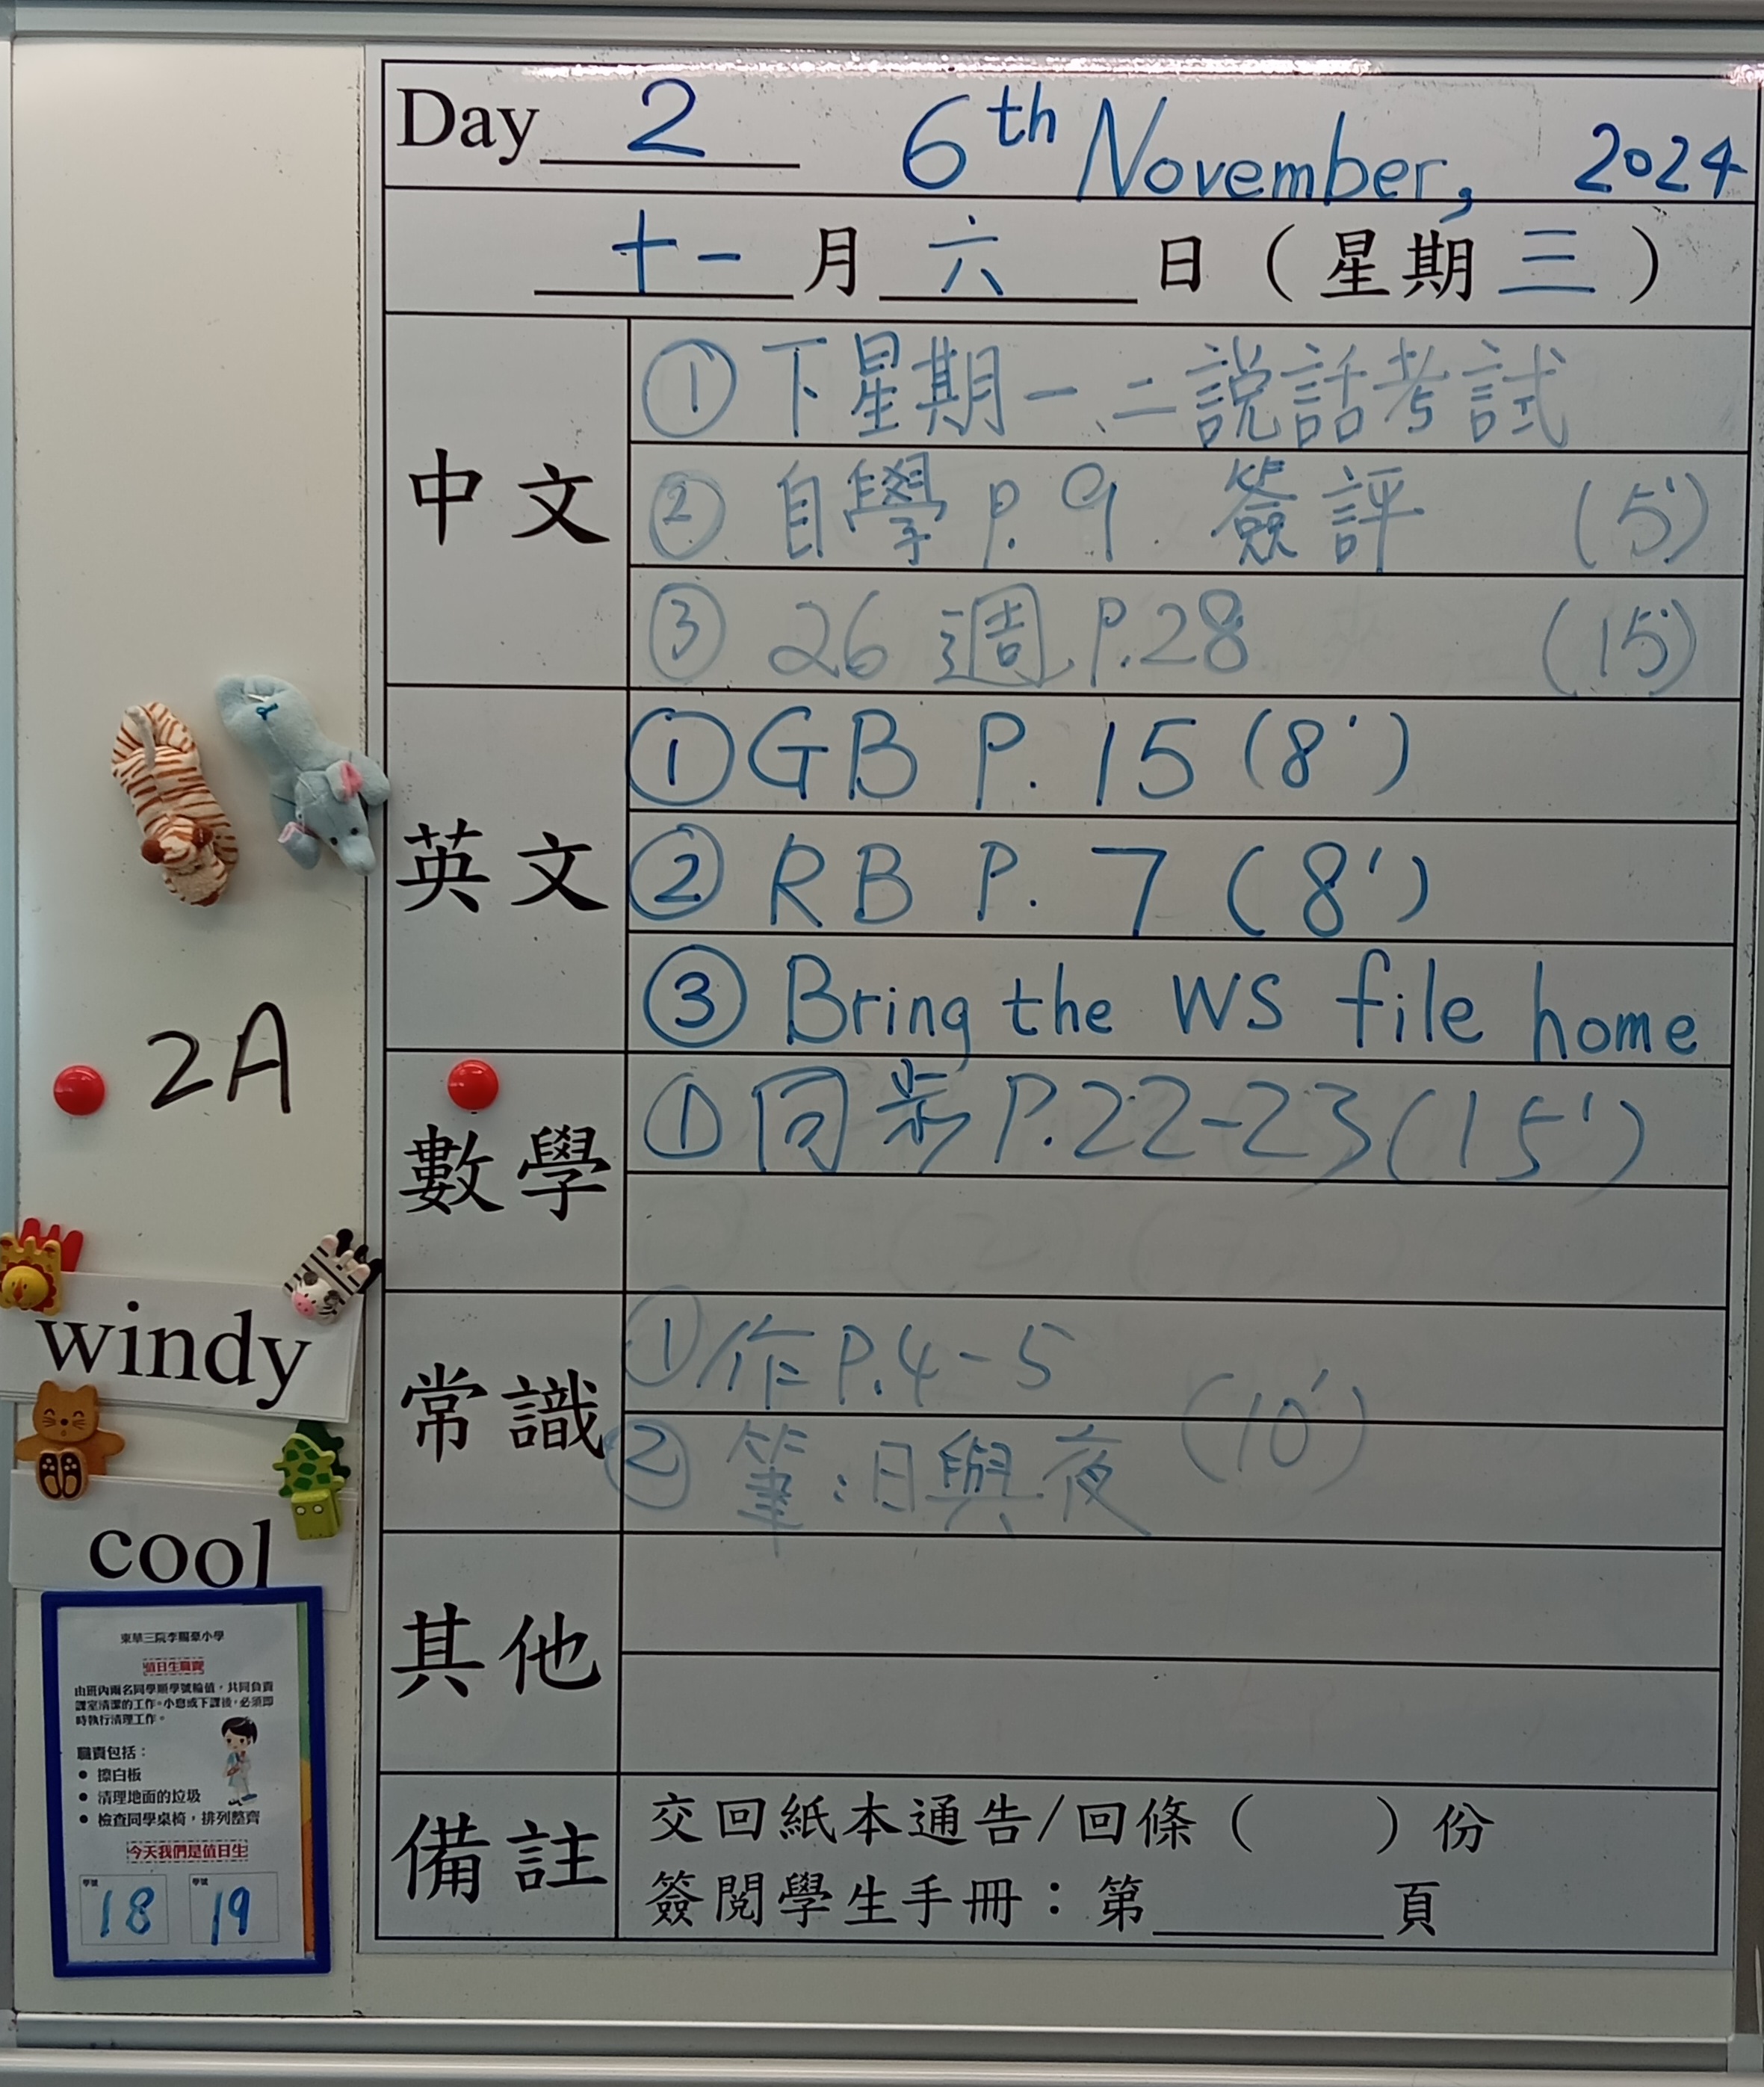 Day 2 6th November, 2024
十一月六日（星期三）
中文
① 下星期一、二說話考試
② 自學 P.9 簽評 (5')
③ 26週 P.28 (15')
英文
① GB P. 15 (8')
② RB P. 7 (8')
③ Bring the WS file home
數學
① 同步 P.22-23 (15')
常識
① 作 P.4-5
② 筆：日與夜 (10')
其他
備註
交回紙本通告/回條（ ）份
簽閱學生手冊：第 頁
2A
windy
cool
東華三院李賜豪小學
值日生職責
由班內兩名同學順學號輪值，共同負責
課室清潔的工作。小息或下課後，必須即
時執行清理工作。
職責包括：
● 擦白板
● 清理地面的垃圾
● 檢查同學桌椅，排列整齊
今天我們是值日生
學號 學號
18 19